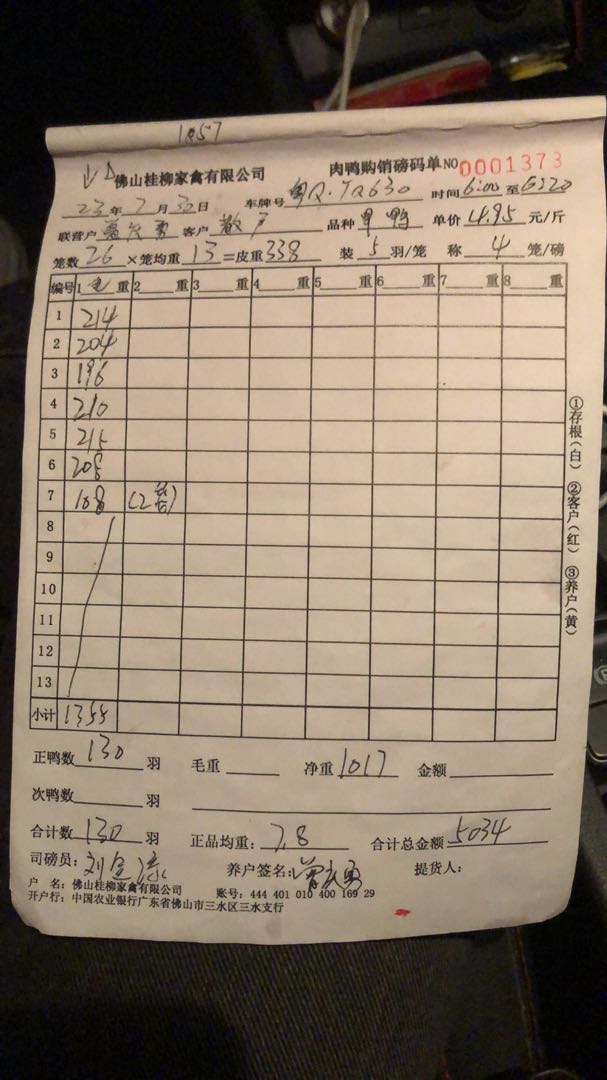 1057
佛山桂柳家禽有限公司 肉鸭购销磅码单NO 0001373
23年7月30日 车牌号 粤Q·7Q630 时间6:00至6:20
联营户 客户 散户 品种 鸭 单价4.95元/斤
笼数26×笼均重13=皮重338 装5羽/笼 称4笼/磅
编号 1毛重 2 重 3 重 4 重 5 重 6 重 7 重 8 重
1 214
2 204
3 196
4 210
5 215
6 208
7 108 (2笼)
8
9
10
11
12
13
小计 1355
①存根(白) ②客户(红) ③养户(黄)
正鸭数130羽 毛重 净重1017 金额
次鸭数 羽
合计数130羽 正品均重:7.8 合计总金额5034
司磅员:刘 养户签名: 提货人:
户 名:佛山桂柳家禽有限公司 账号:444 401 010 400 169 29
开户行:中国农业银行广东省佛山市三水区三水支行